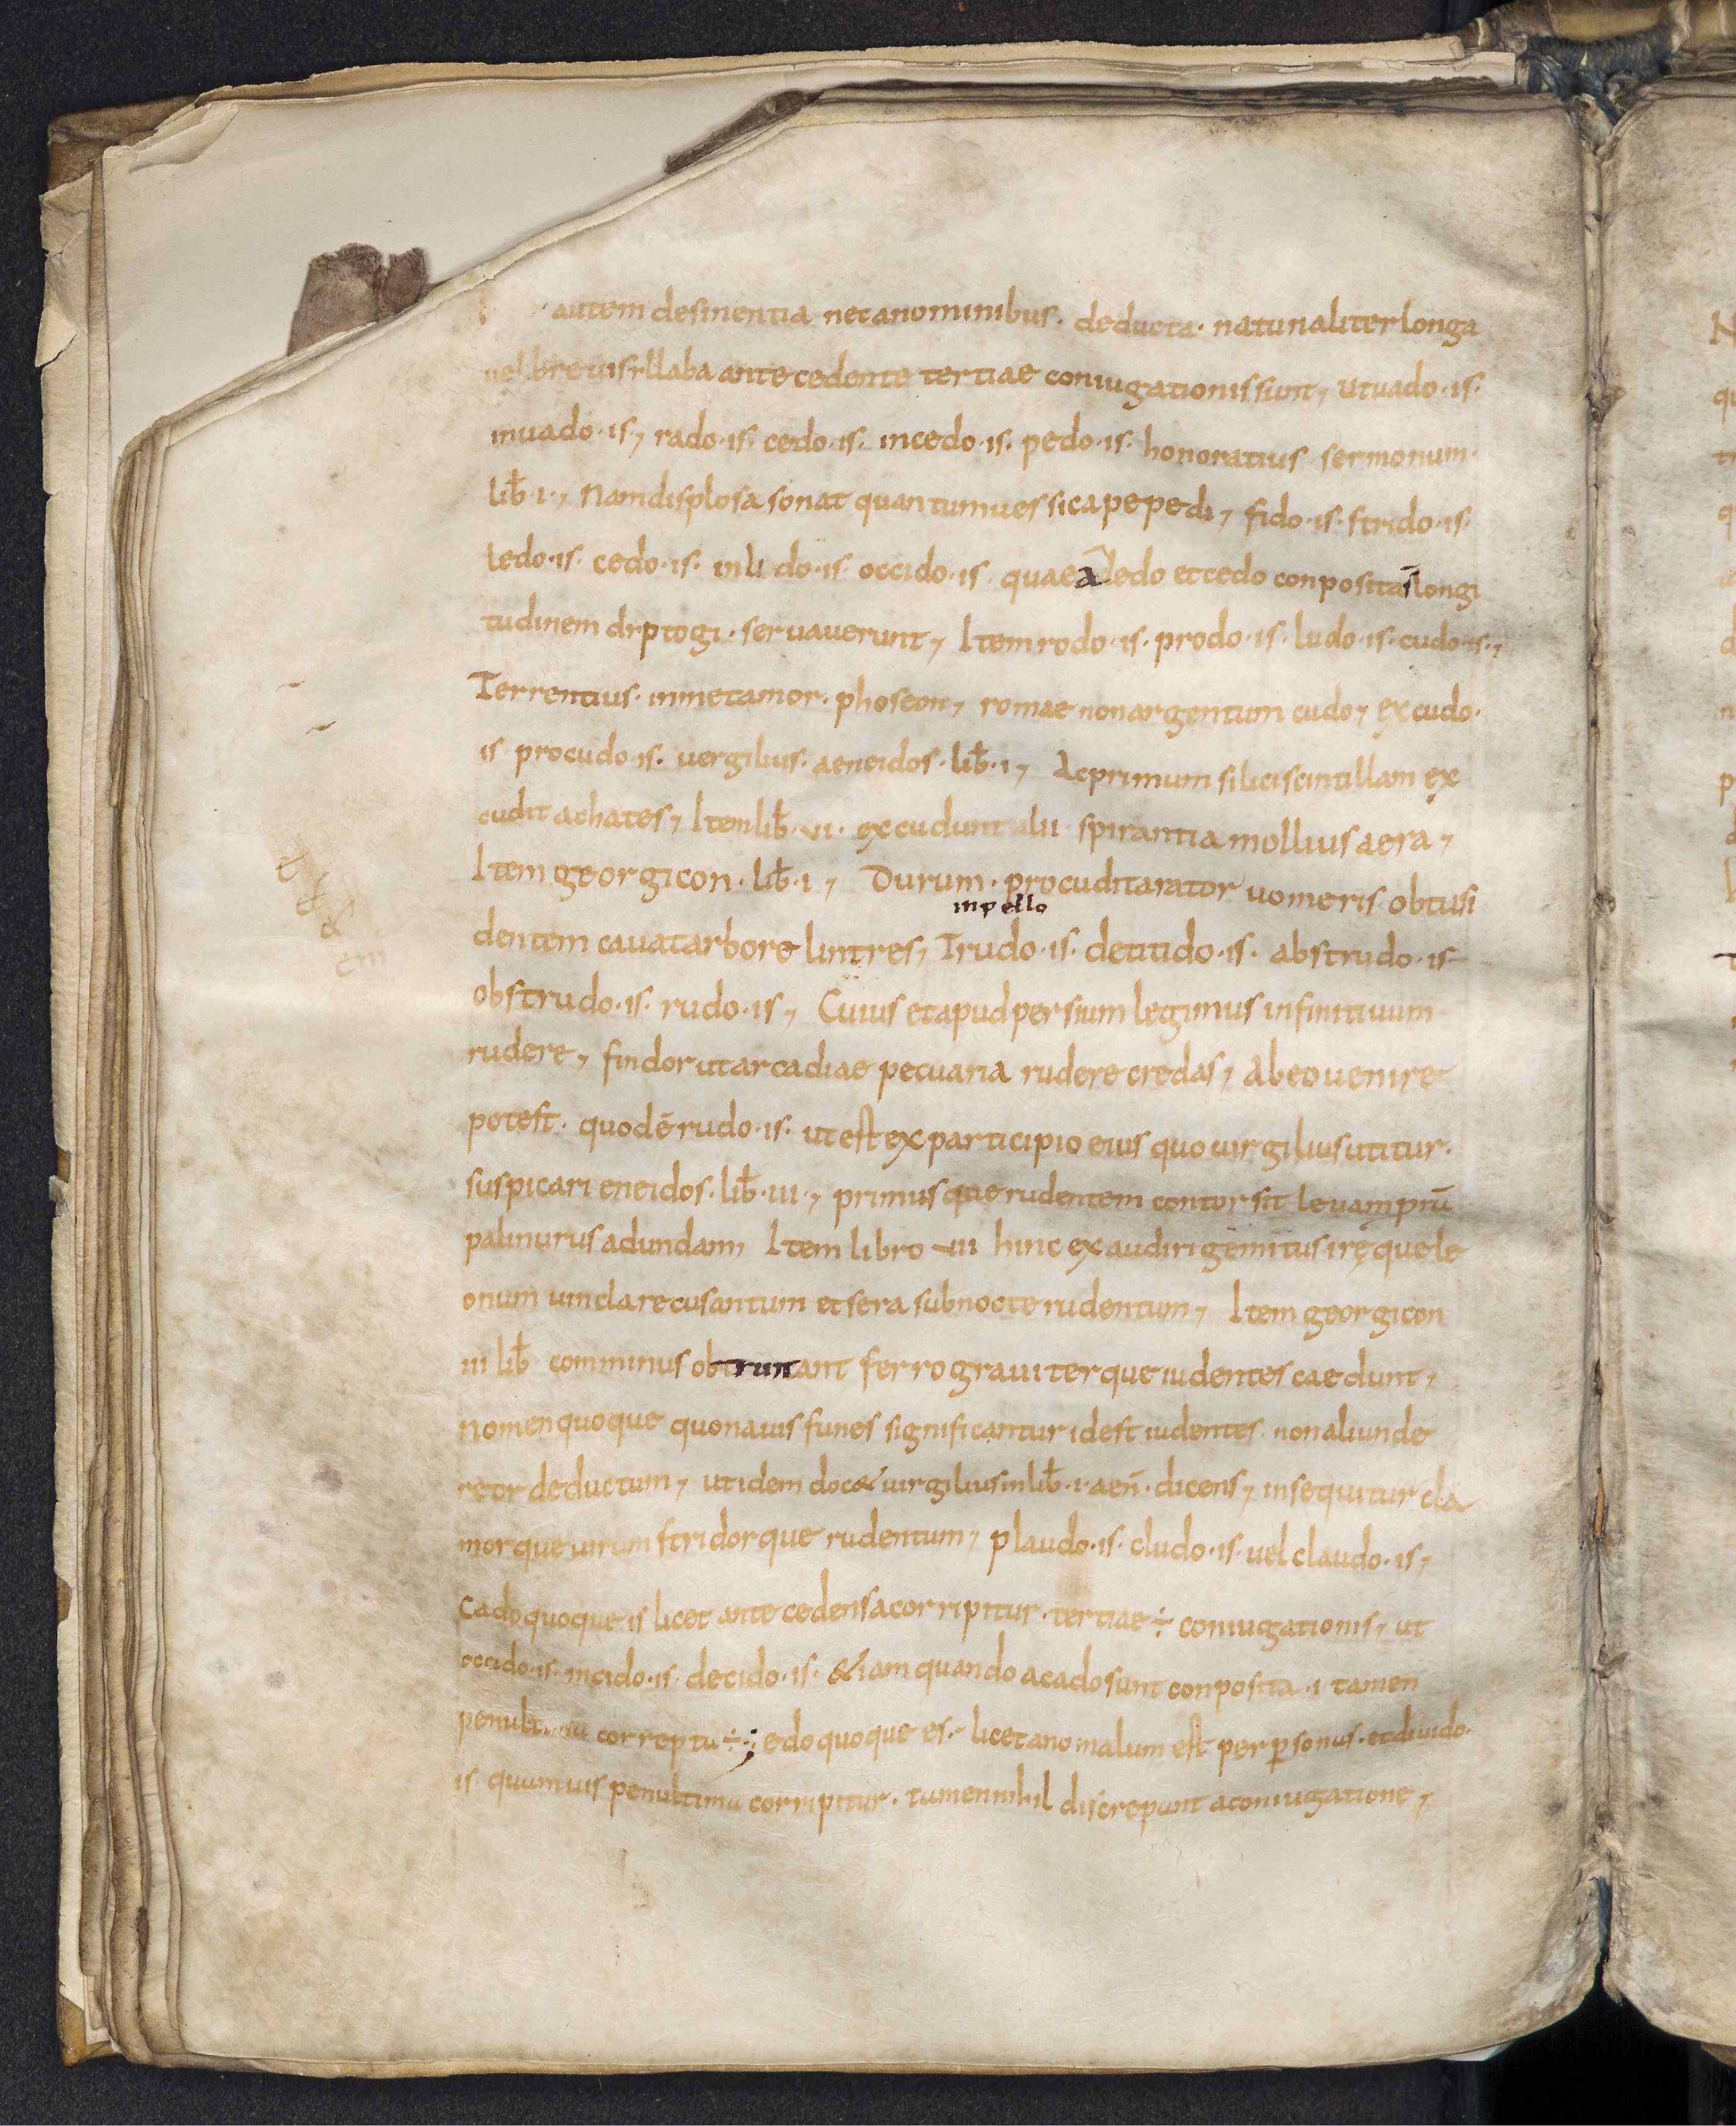 autem desinentia nec a nominibus. deducta. naturaliter longa
uel breui syllaba antecedente tertiae coniugationis sunt, ut uado .is.
inuado .is, rado .is. cedo .is. incedo .is. pedo .is. honoratius sermonum.
lib̄ .i., Nam displosa sonat quantum uessica pepedi, fido .is. strido .is.
ledo .is. cedo .is. inlido .is. occido .is. quae a ledo et cedo conposita longi
tudinem dyptogi. seruauerunt, Item rodo .is. prodo .is. ludo .is. cudo .is.,
Terrentius. in metamor. phoseon, romae non argentum cudo, excudo.
is procudo .is. uergilius. aeneidos. lib̄ .i, Ac primum silici scintillam ex
cudit achates, Item lib̄ .vi. excudunt alii spirantia mollius aera,
Item georgicon. lib̄ .i, Durum. procudit arator uomeris obtusi
inpello
dentem cauat arbore lintres, Trudo .is. detitido .is. abstrudo .is
obstrudo .is. rudo .is, Cuius et apud persium legimus infinitiuum
rudere, findor ut arcadiae pecuaria rudere credas, Ab eo uenire
potest. quod ē rudo .is. ut est ex participio eius quo uirgilius utitur.
suspicari eneidos. lib̄ .iii, primusque rudentem contorsit leuam prū
palinurus ad undam, Item libro vii hinc exaudiri gemitus iręque le
onum uincla recusantum et sera sub nocte rudentum, Item georgicon
iii lib̄ comminus obtruncant ferro grauiterque rudentes caedunt,
nomen quoque quo nauis funes significantur id est rudentes. non aliunde
retr deductum, ut idem doc& uirgilius in lib̄ .i. aen̄. dicens, insequitur cla
morque uirum stridorque rudentum, plaudo .is. cludo .is. uel claudo .is,
cado quoque is licet antecedens a corripitur. tertiae ÷ coniugationis, ut
occido .is. incido .is. decido .is. &iam quando a cado sunt conposita .i. tamen
penultima correptu ÷; edo quoque es. licet anomalum est per ꝑsonus. et diuido.
is. quamuis penultima corripitur. tamen nihil discrepant a coniugatione,